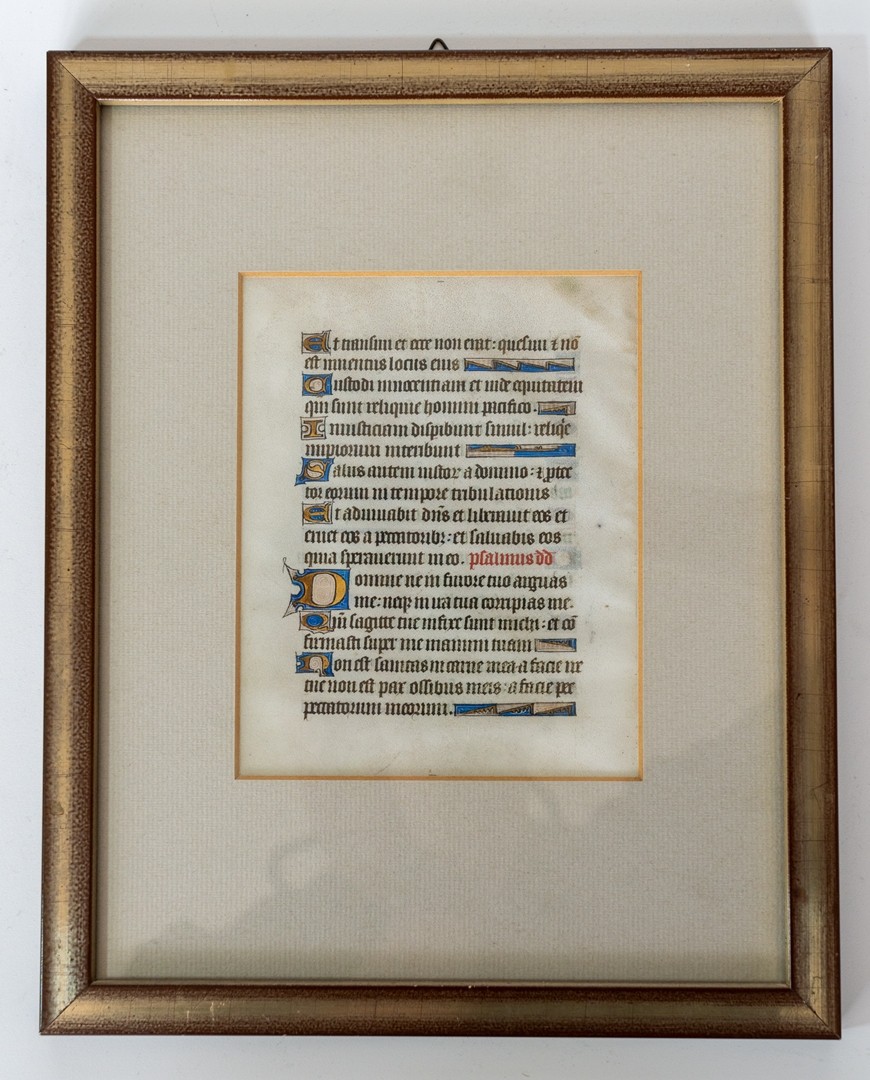 Et transiui et ecce non erat: quesiui ⁊ nō
est inuentus locus eius
Custodi innocentiam et uide equitatem
qm̄ sunt reliquie homini pacifico.
Iniusticiam dispibunt simul: reliqͥe
impiorum interibunt
Salus autem iustoꝝ a domino: ⁊ ꝓtec
tor eorum in tempore tribulationis
Et adiuuabit dn̄s et liberauit eos et
eruet eos a peccatoribꝫ: et saluabis eos
quia sperauerunt in eo. psalmus dd
Domine ne in furore tuo arguas
me: neqꝫ in ira tua corripias me.
Qm̄ sagitte tue infixe sunt michi: et cō
firmasti super me manum tuam
Non est sanitas in carne mea a facie ire
tue non est pax ossibus meis a facie pec
peccatorum meorum.